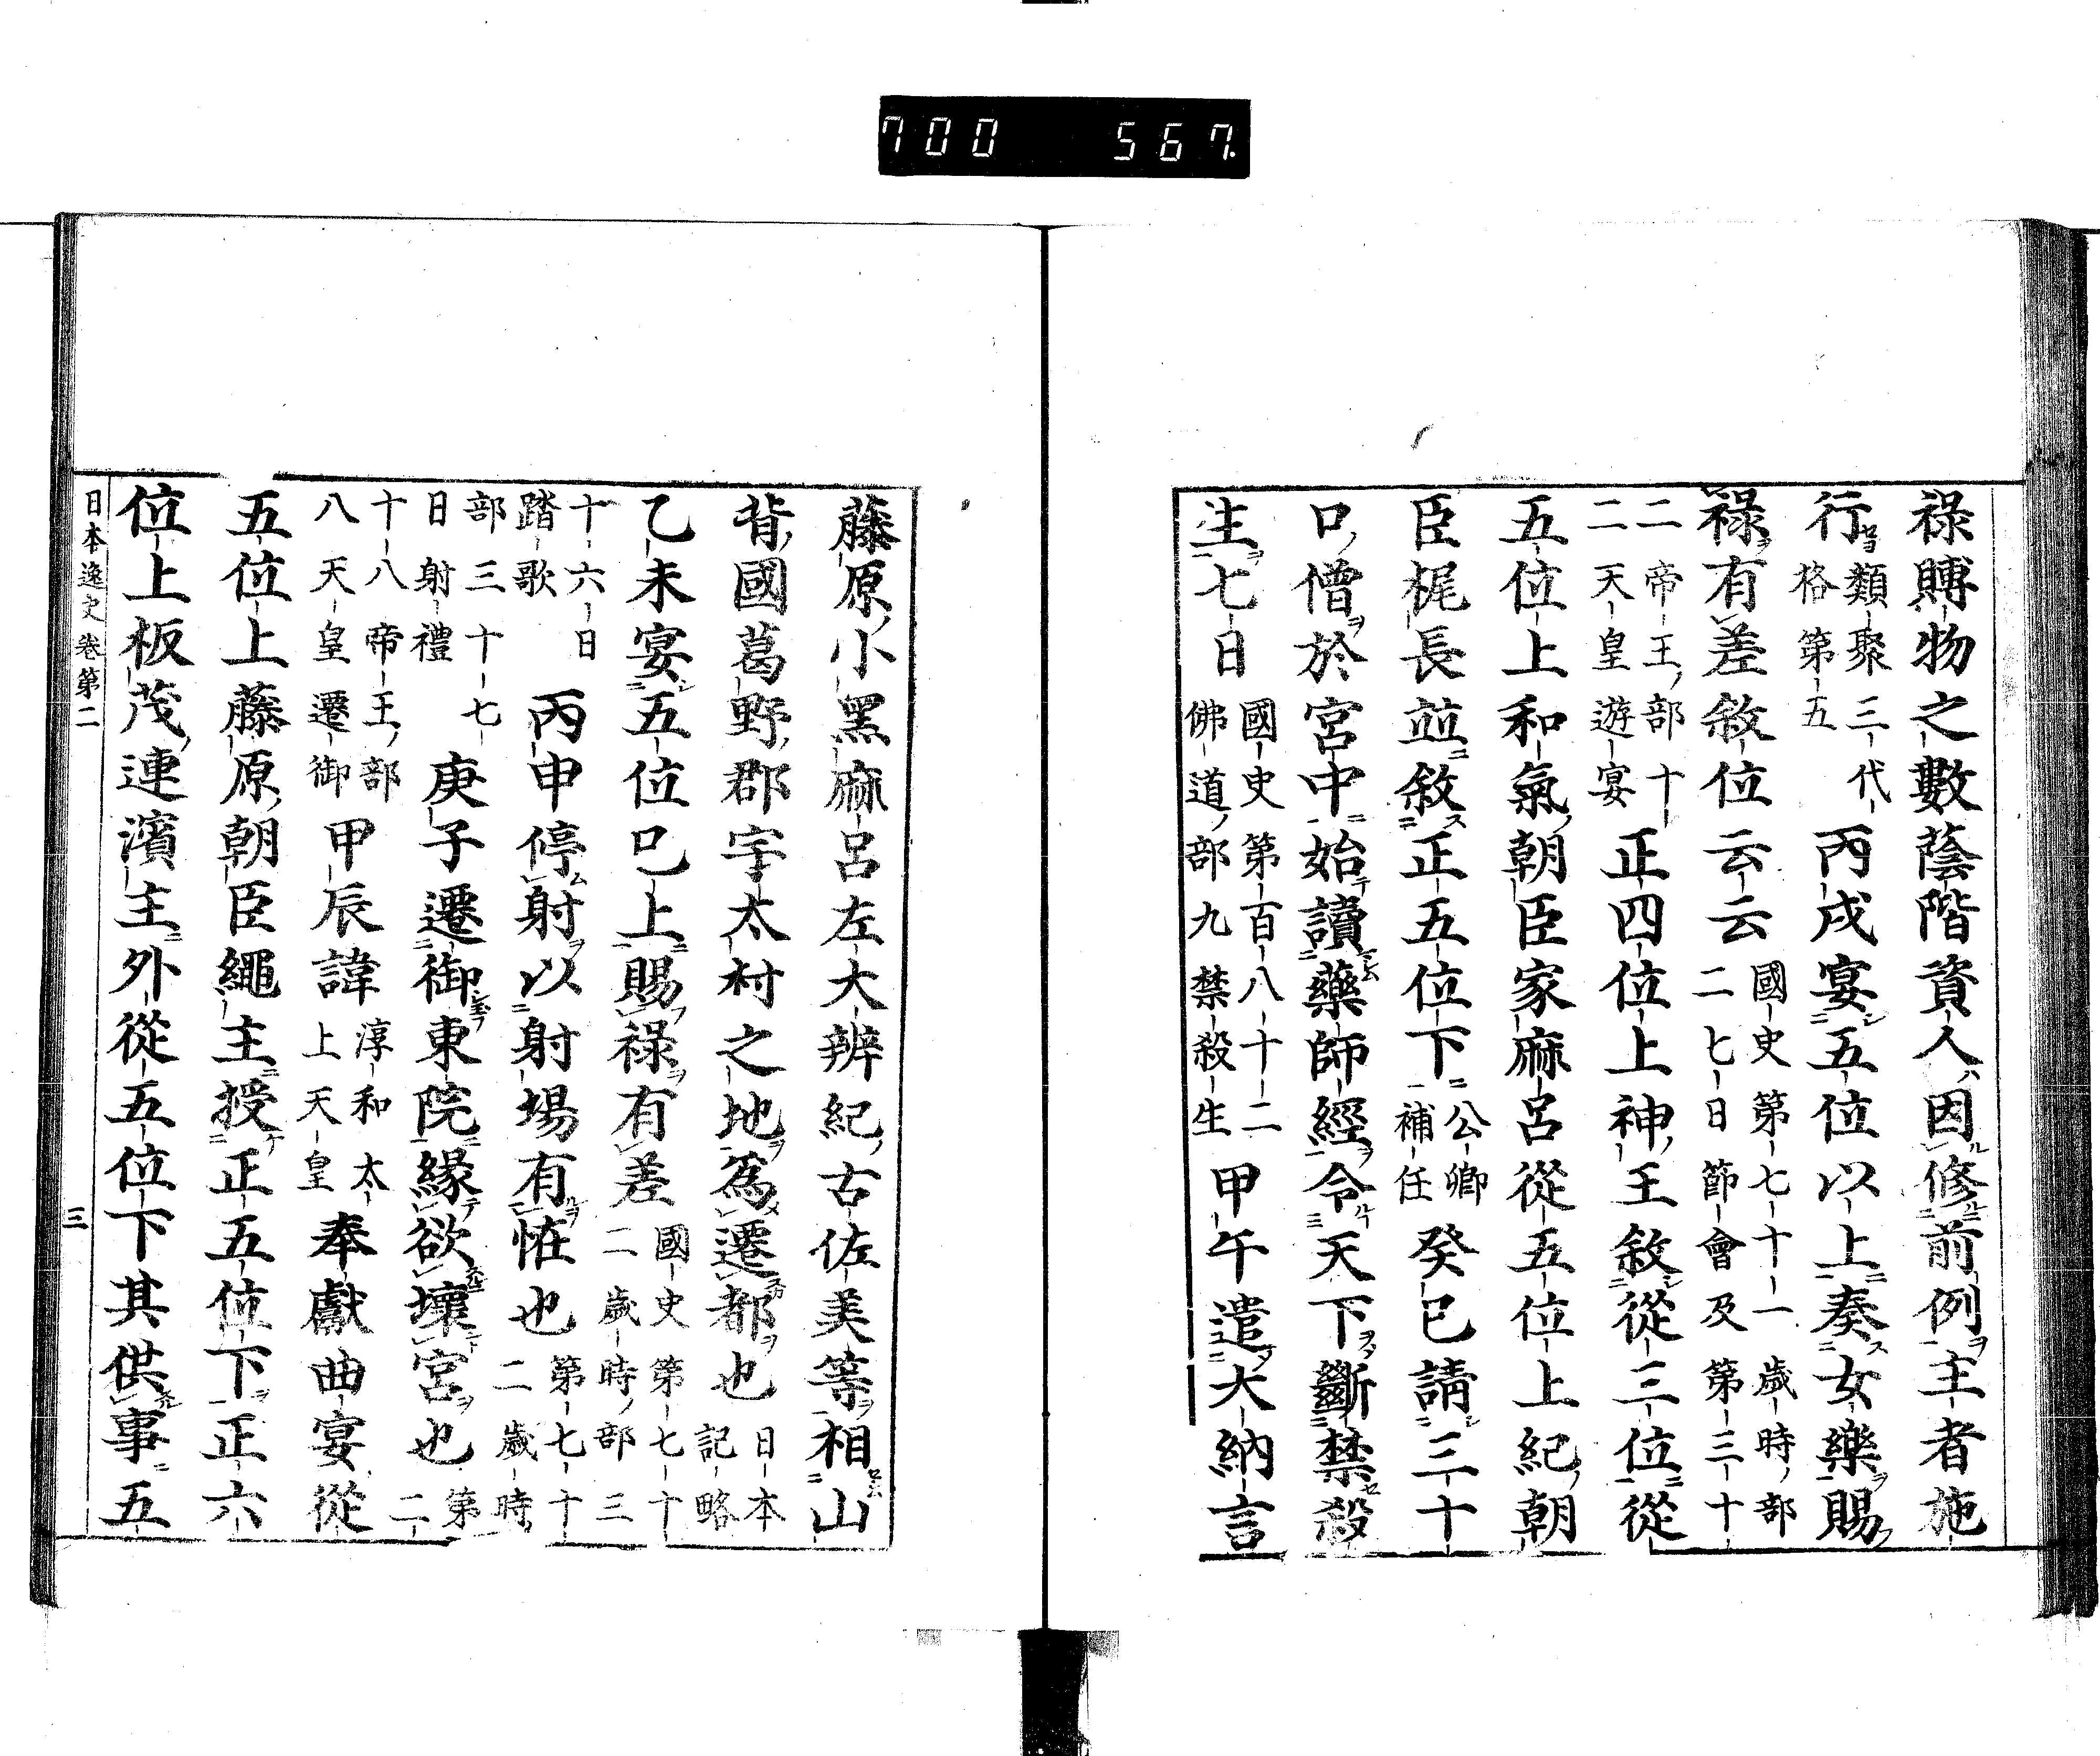 700 567.
祿賻物之數蔭階資人因修前例主者施
行類聚三代格第五丙戌宴五位以上奏女樂賜
祿有差敘位云云國史第七十一歲時部二七日節會及第三十
二帝王部十二天皇遊宴正四位上神王敘從三位從
五位上和氣朝臣家麻呂從五位上紀朝
臣梶長並敘正五位下公卿補任癸巳請三十
口僧於宮中始讀藥師經令天下斷禁殺
生七日國史第百八十二佛道部九禁殺生甲午遣大納言
藤原小黑麻呂左大辨紀古佐美等相山
背國葛野郡宇太村之地爲遷都也日本記略
乙未宴五位已上賜祿有差國史第七十二歲時部三
十六日踏歌丙申停射以射場有恠也第七十二歲時
部三十七日射禮庚子遷御東院緣欲壞宮也第二
十八帝王部八天皇遷御甲辰諱淳和太上天皇奉獻曲宴從
五位上藤原朝臣繩主授正五位下正六
位上板茂連濱主外從五位下其供事五
日本逸史卷第二 三